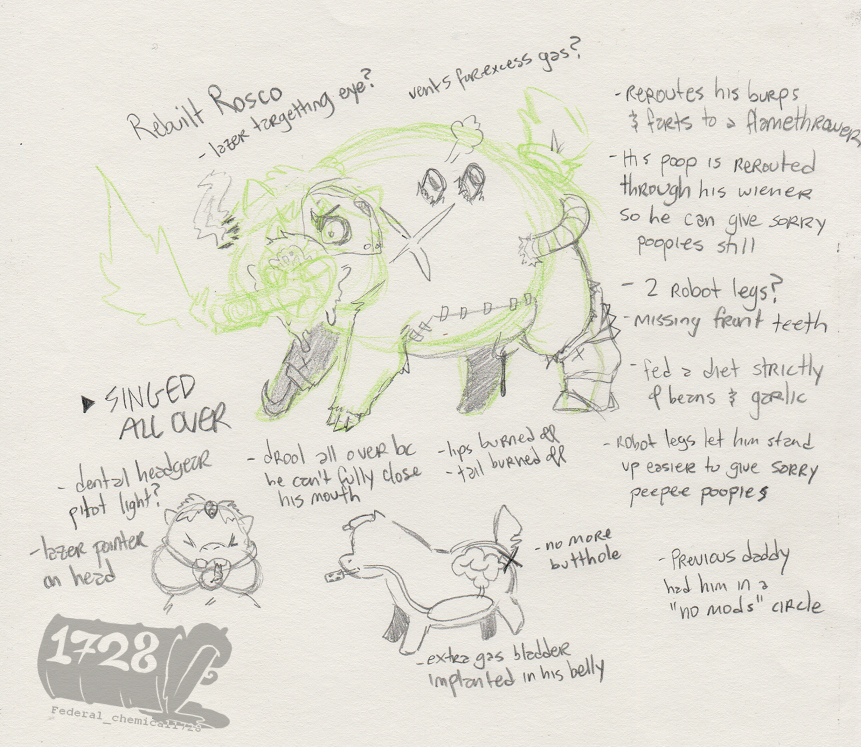 Rebuilt Rosco
- lazer targetting eye?
vents for excess gas?
- reroutes his burps
& farts to a flamethrower
- His poop is rerouted
through his wiener
so he can give sorry
poopies still
- 2 robot legs?
- missing front teeth
- fed a diet strictly
of beans & garlic
- Robot legs let him stand
up easier to give sorry
peepee poopies
- Previous daddy
had him in a
"no mods" circle
▶ SINGED
ALL OVER
- dental headgear
pilot light?
- lazer pointer
on head
- drool all over bc
he can't fully close
his mouth
- lips burned off
- tail burned off
- no more
butthole
- extra gas bladder
implanted in his belly
1728
Federal_chemical1728